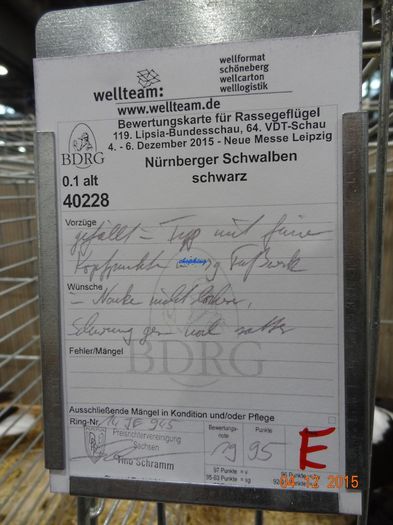 wellteam:
wellformat
schöneberg
wellcarton
welllogistik
www.wellteam.de
Bewertungskarte für Rassegeflügel
119. Lipsia-Bundesschau, 64. VDT-Schau
4. - 6. Dezember 2015 - Neue Messe Leipzig
BDRG
Nürnberger Schwalben
schwarz
0.1 alt
40228
Vorzüge
gefällt – Typ mit feine
Kopfpunkte Fußwerk
Wünsche
– Nacke nicht
noch satter
Fehler/Mängel
BDRG
Ausschließende Mängel in Kondition und/oder Pflege
Ring-Nr. 14 JE 945
Bewertungs-
note
Punkte
Preisrichtervereinigung
Sachsen
Tino Schramm
sg 95
E
97 Punkte = v
96 Punkte
93-95 Punkte = sg
04 12 2015